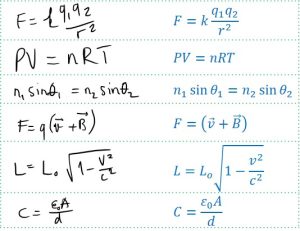 F = k q₁q₂/r² F = k q₁q₂/r²
PV = nRT PV = nRT
n₁ sinθ₁ = n₂ sinθ₂ n₁ sin θ₁ = n₂ sin θ₂
F = q(v⃗ + B⃗) F = (v⃗ + B⃗)
L = L₀ √(1 − v²/c²) L = Lₒ √(1 − v²/c²)
C = ε₀A/d C = ε₀A/d